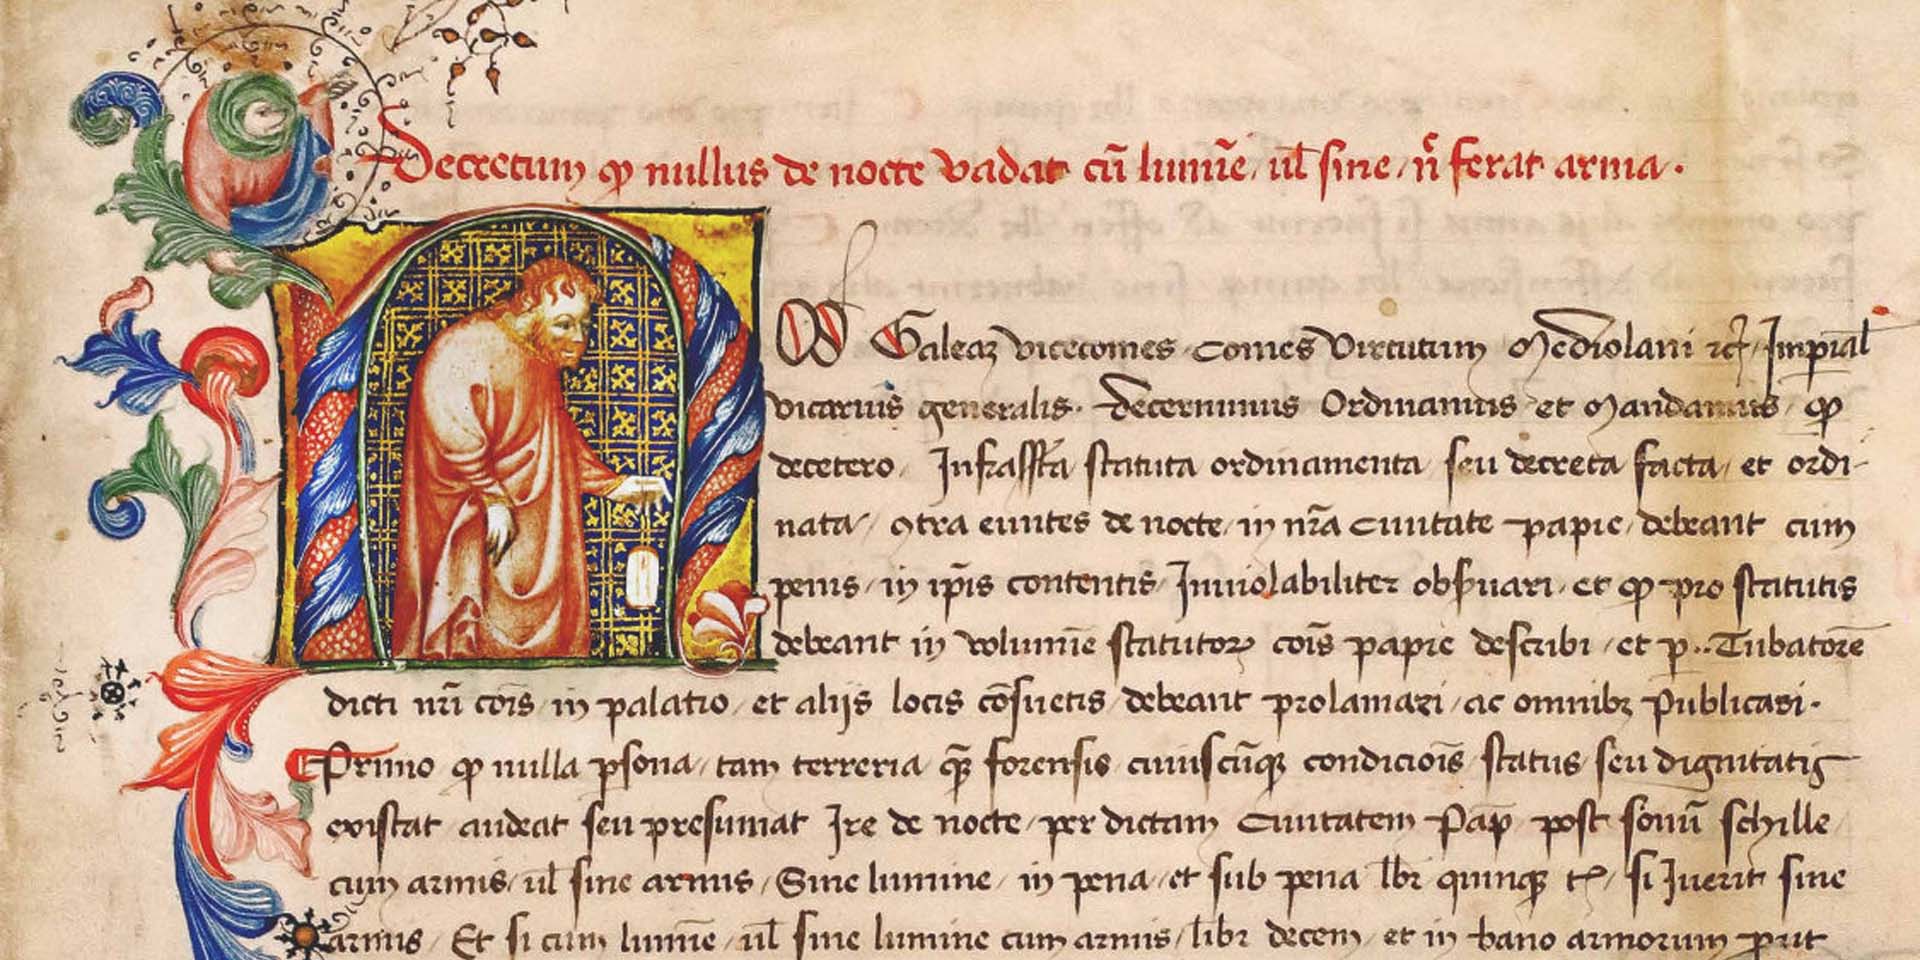 Decretum ꝙ nullus de nocte vadat cũ lumĩe ul̃ sine nͦ ferat arma.
Galeaz vicecomes Comes Virtutum Mediolani ⁊c̃ Imꝑial̃
vicarius generalis. Decernimus Ordinamus et Mandamus ꝙ
decetero Infrassc̃ta statuta ordinamenta seu decreta facta et ordi-
nata ꝯtra euntes de nocte in nr̃a Ciuitate papie debeant cum
penis in ip̃is contentis Inuiolabiliter obẜuari et ꝙ pro statutis
debeant in volumĩe statutoꝝ cõis papie describi et p .. Tubatorẽ
dicti nr̃i cõis in palatio et alijs locis cõsuetis debeant prolamari ac omnibꝫ Publicari.
Primo ꝙ nulla ꝑsona tam terreria qꝫ̃ forensis cuiuscũqꝫ condiciõis status seu dignitatis
existat audeat seu presumat Ire de nocte per dictam Ciuitatem Pap̃ post sonũ schille
cum armis ul̃ sine armis Sine lumine in pena et sub pena lbr quinqꝫ t᷑ si Iuerit sine
armis Et si cum lumĩe ul̃ sine lumine cum armis libr decem et in bano armorum ꝓut